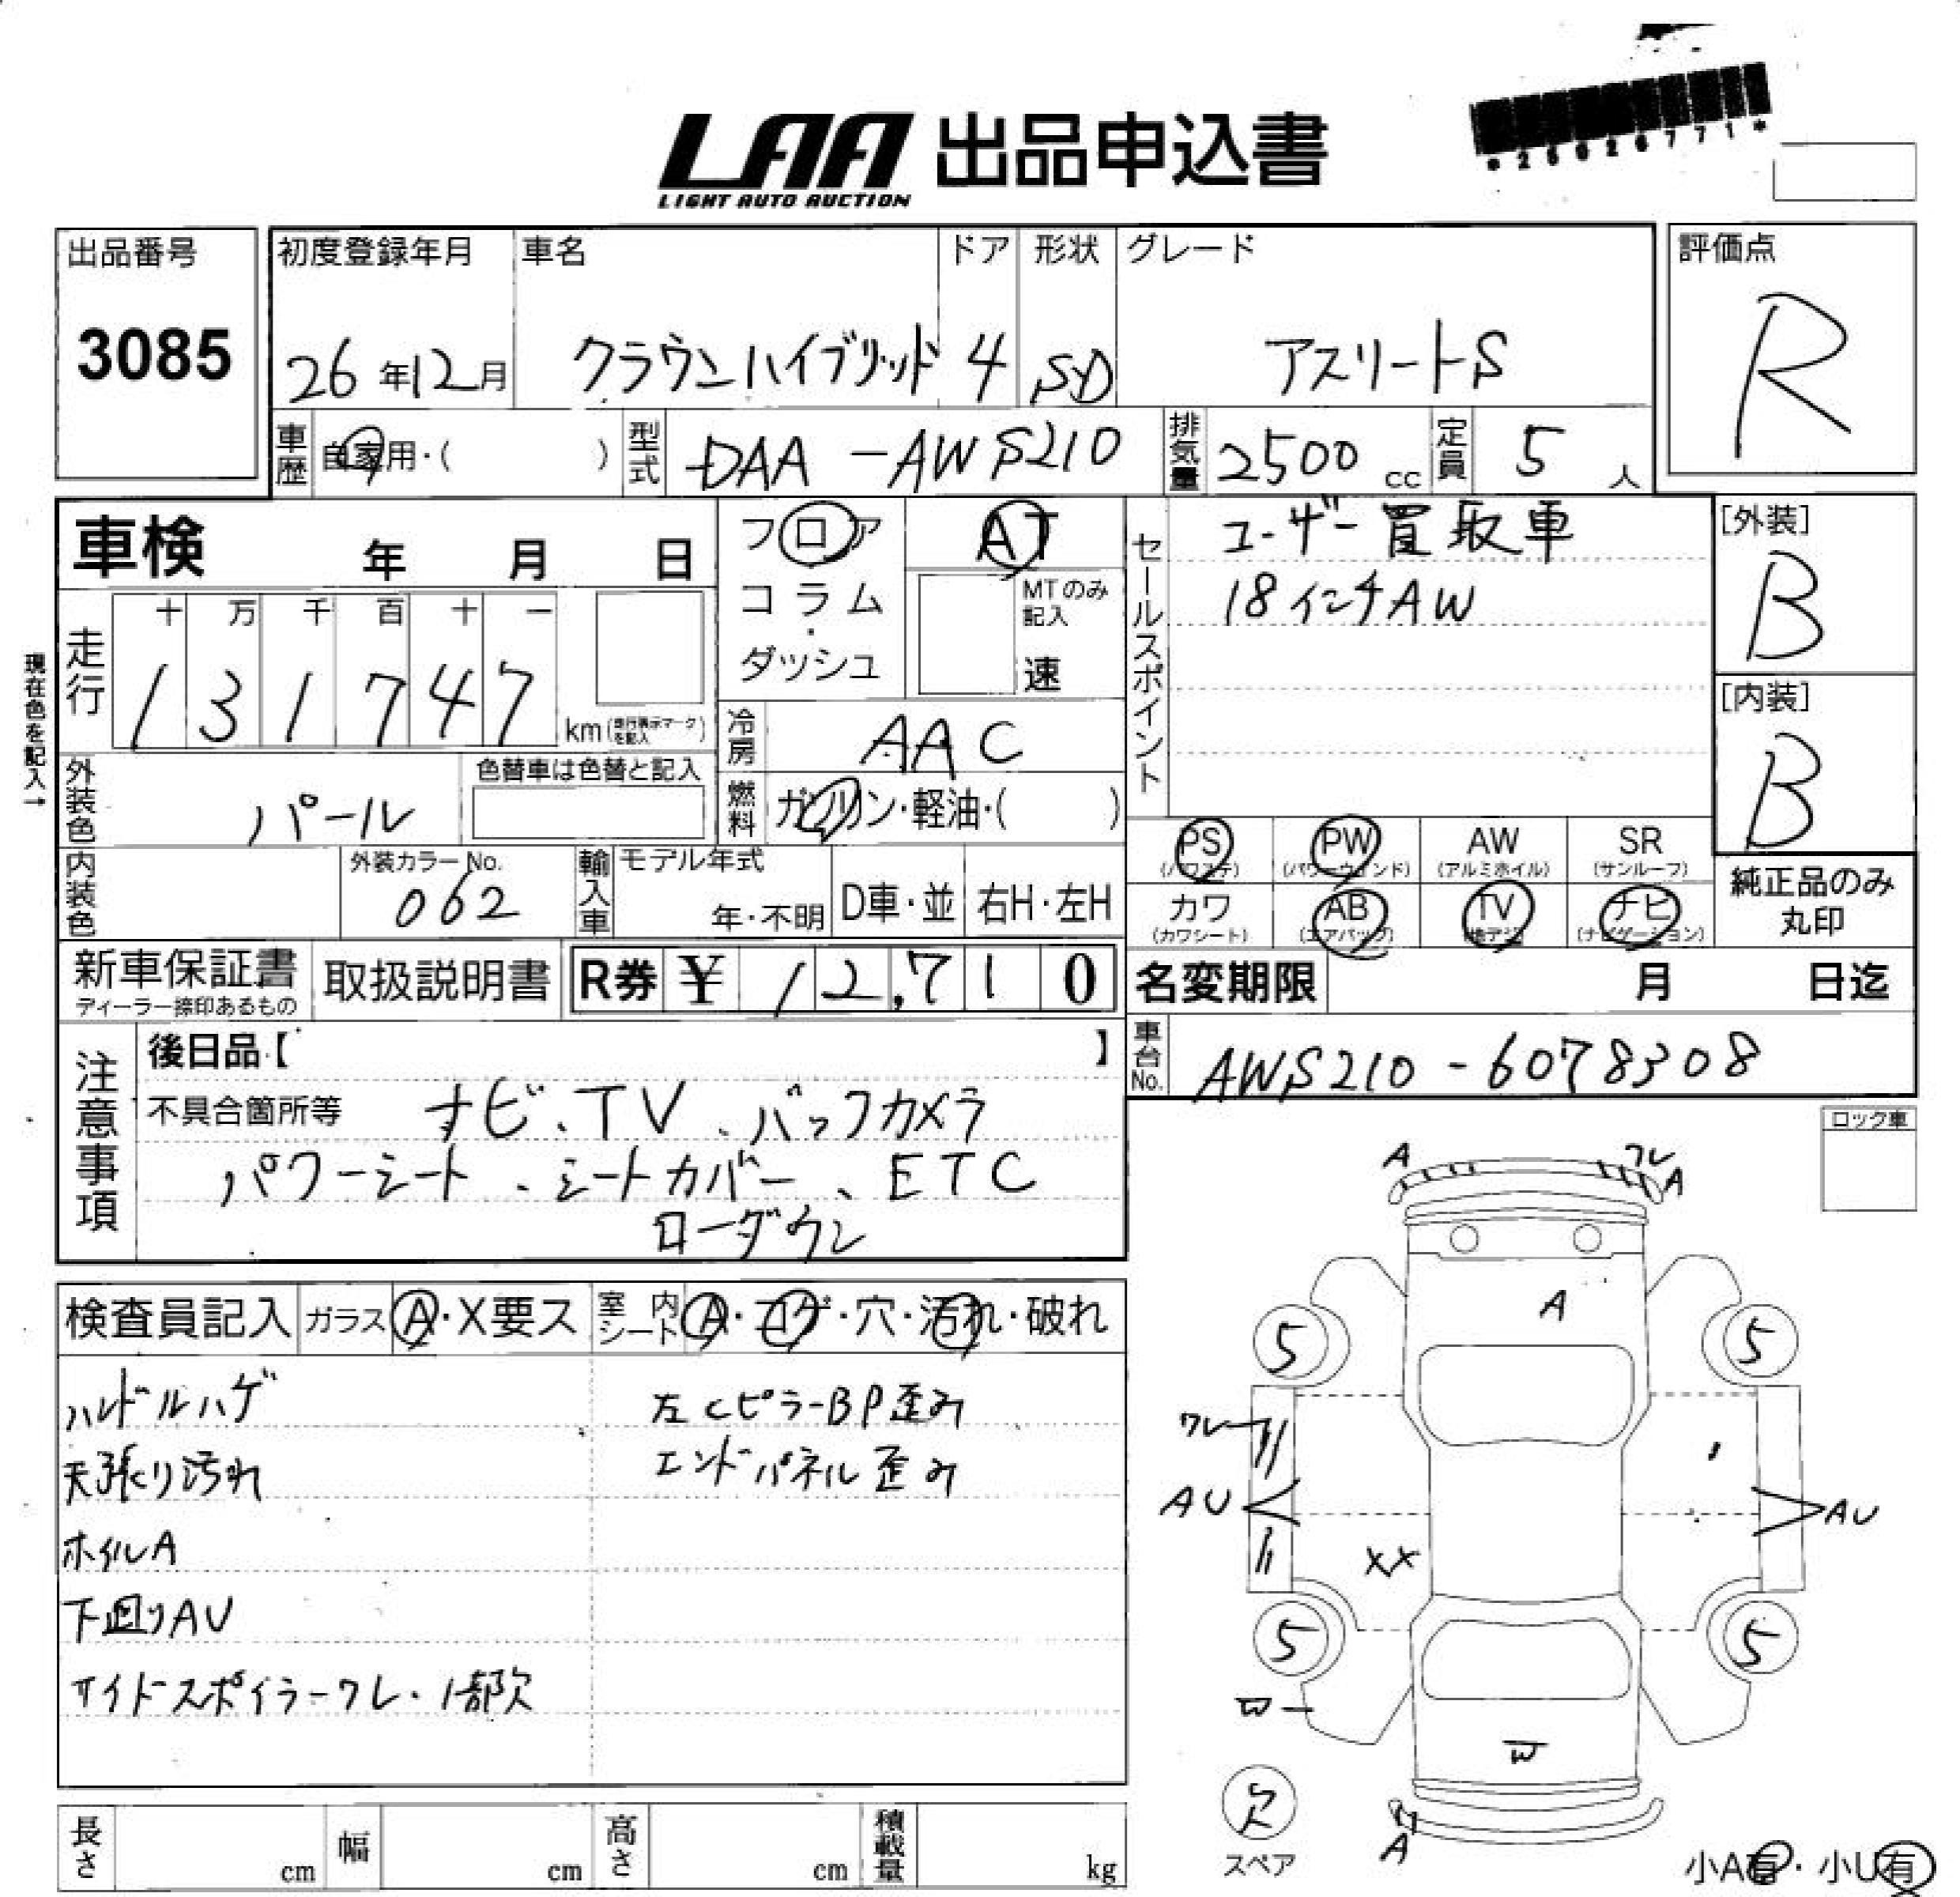 *25026771*
LAA 出品申込書
LIGHT AUTO AUCTION
出品番号 初度登録年月 車名 ドア 形状 グレード 評価点
3085 26年12月 クラウンハイブリッド 4 SD アスリートS R
車歴 自家用・( ) 型式 DAA-AWS210 排気量 2500 cc 定員 5 人
車検 年 月 日 フロア AT セールスポイント ユーザー買取車 [外装]
コラム・ダッシュ MTのみ記入 速 18インチAW B
現在色を記入→
走行 十 万 千 百 十 一
1 3 1 7 4 7 km (走行表示マークを記入) [内装]
冷房 AAC B
外装色 パール 色替車は色替と記入 燃料 ガソリン・軽油・( )
PS (パワステ) PW (パワーウインド) AW (アルミホイル) SR (サンルーフ)
内装色 外装カラーNo. 062 輸入車 モデル年式 年・不明 D車・並 右H・左H
カワ (カワシート) AB (エアバッグ) TV (地デジ) ナビ (ナビゲーション) 純正品のみ丸印
新車保証書 取扱説明書 R券 ¥ 12,710 名変期限 月 日迄
ディーラー捺印あるもの
注意事項 後日品【 】 車台No. AWS210-6078308
不具合箇所等 ナビ、TV、バックカメラ
パワーシート、シートカバー、ETC
ローダウン
ロック車
検査員記入 ガラス A・X要ス 室内シート A・コゲ・穴・汚れ・破れ
ハンドルハゲ 左CピラーBP歪み
天張り汚れ エンドパネル歪み
ホイルA
下廻りAU
サイドスポイラーワレ・1部欠
A ワレ A
A
5 5
ワレ
AU AU
XX
5 5
W
W
欠
スペア
A
小A有・小U有
長さ cm 幅 cm 高さ cm 積載量 kg